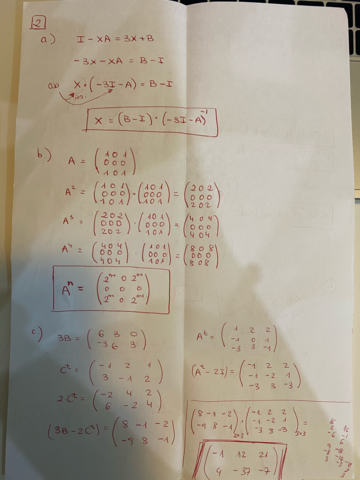 2
a) I - XA = 3X + B
-3X - XA = B - I
X • (-3I - A) = B - I
X = (B - I) • (-3I - A)⁻¹
b) A = (1 0 1
0 0 0
1 0 1)
A² = (1 0 1
0 0 0
1 0 1) • (1 0 1
0 0 0
1 0 1) = (2 0 2
0 0 0
2 0 2)
A³ = (2 0 2
0 0 0
2 0 2) • (1 0 1
0 0 0
1 0 1) = (4 0 4
0 0 0
4 0 4)
A⁴ = (4 0 4
0 0 0
4 0 4) • (1 0 1
0 0 0
1 0 1) = (8 0 8
0 0 0
8 0 8)
Aⁿ = (2ⁿ⁻¹ 0 2ⁿ⁻¹
0 0 0
2ⁿ⁻¹ 0 2ⁿ⁻¹)
c) 3B = (6 3 0
-3 6 3)
C² = (-1 2 1
3 -1 2)
2C² = (-2 4 2
6 -2 4)
(3B - 2C²) = (8 -1 -2
-9 8 -1)
Aᵗ = (1 2 2
-1 0 1
-3 3 -1)
(Aᵗ - 2I) = (-1 2 2
-1 -2 1
-3 3 -3)
(8 -1 -2
-9 8 -1)₂ₓ₃ • (-1 2 2
-1 -2 1
-3 3 -3)₃ₓ₃ =
(-1 12 21
4 -37 -7)